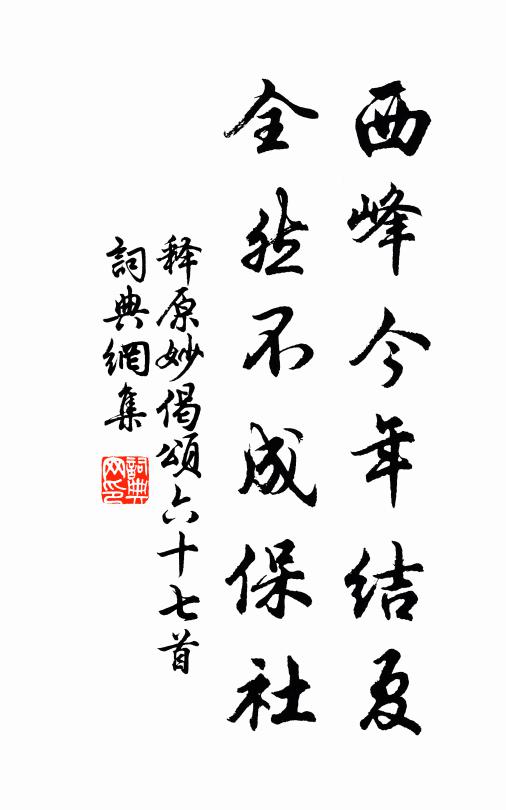 西峰今年结夏
全然不成保社
释原妙偈颂六十七首
詞典網集
詞典网印